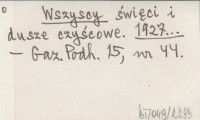 Wszyscy święci i
dusze czyśćowe. 1927...
— Gaz. Podh. 15, nr 44.